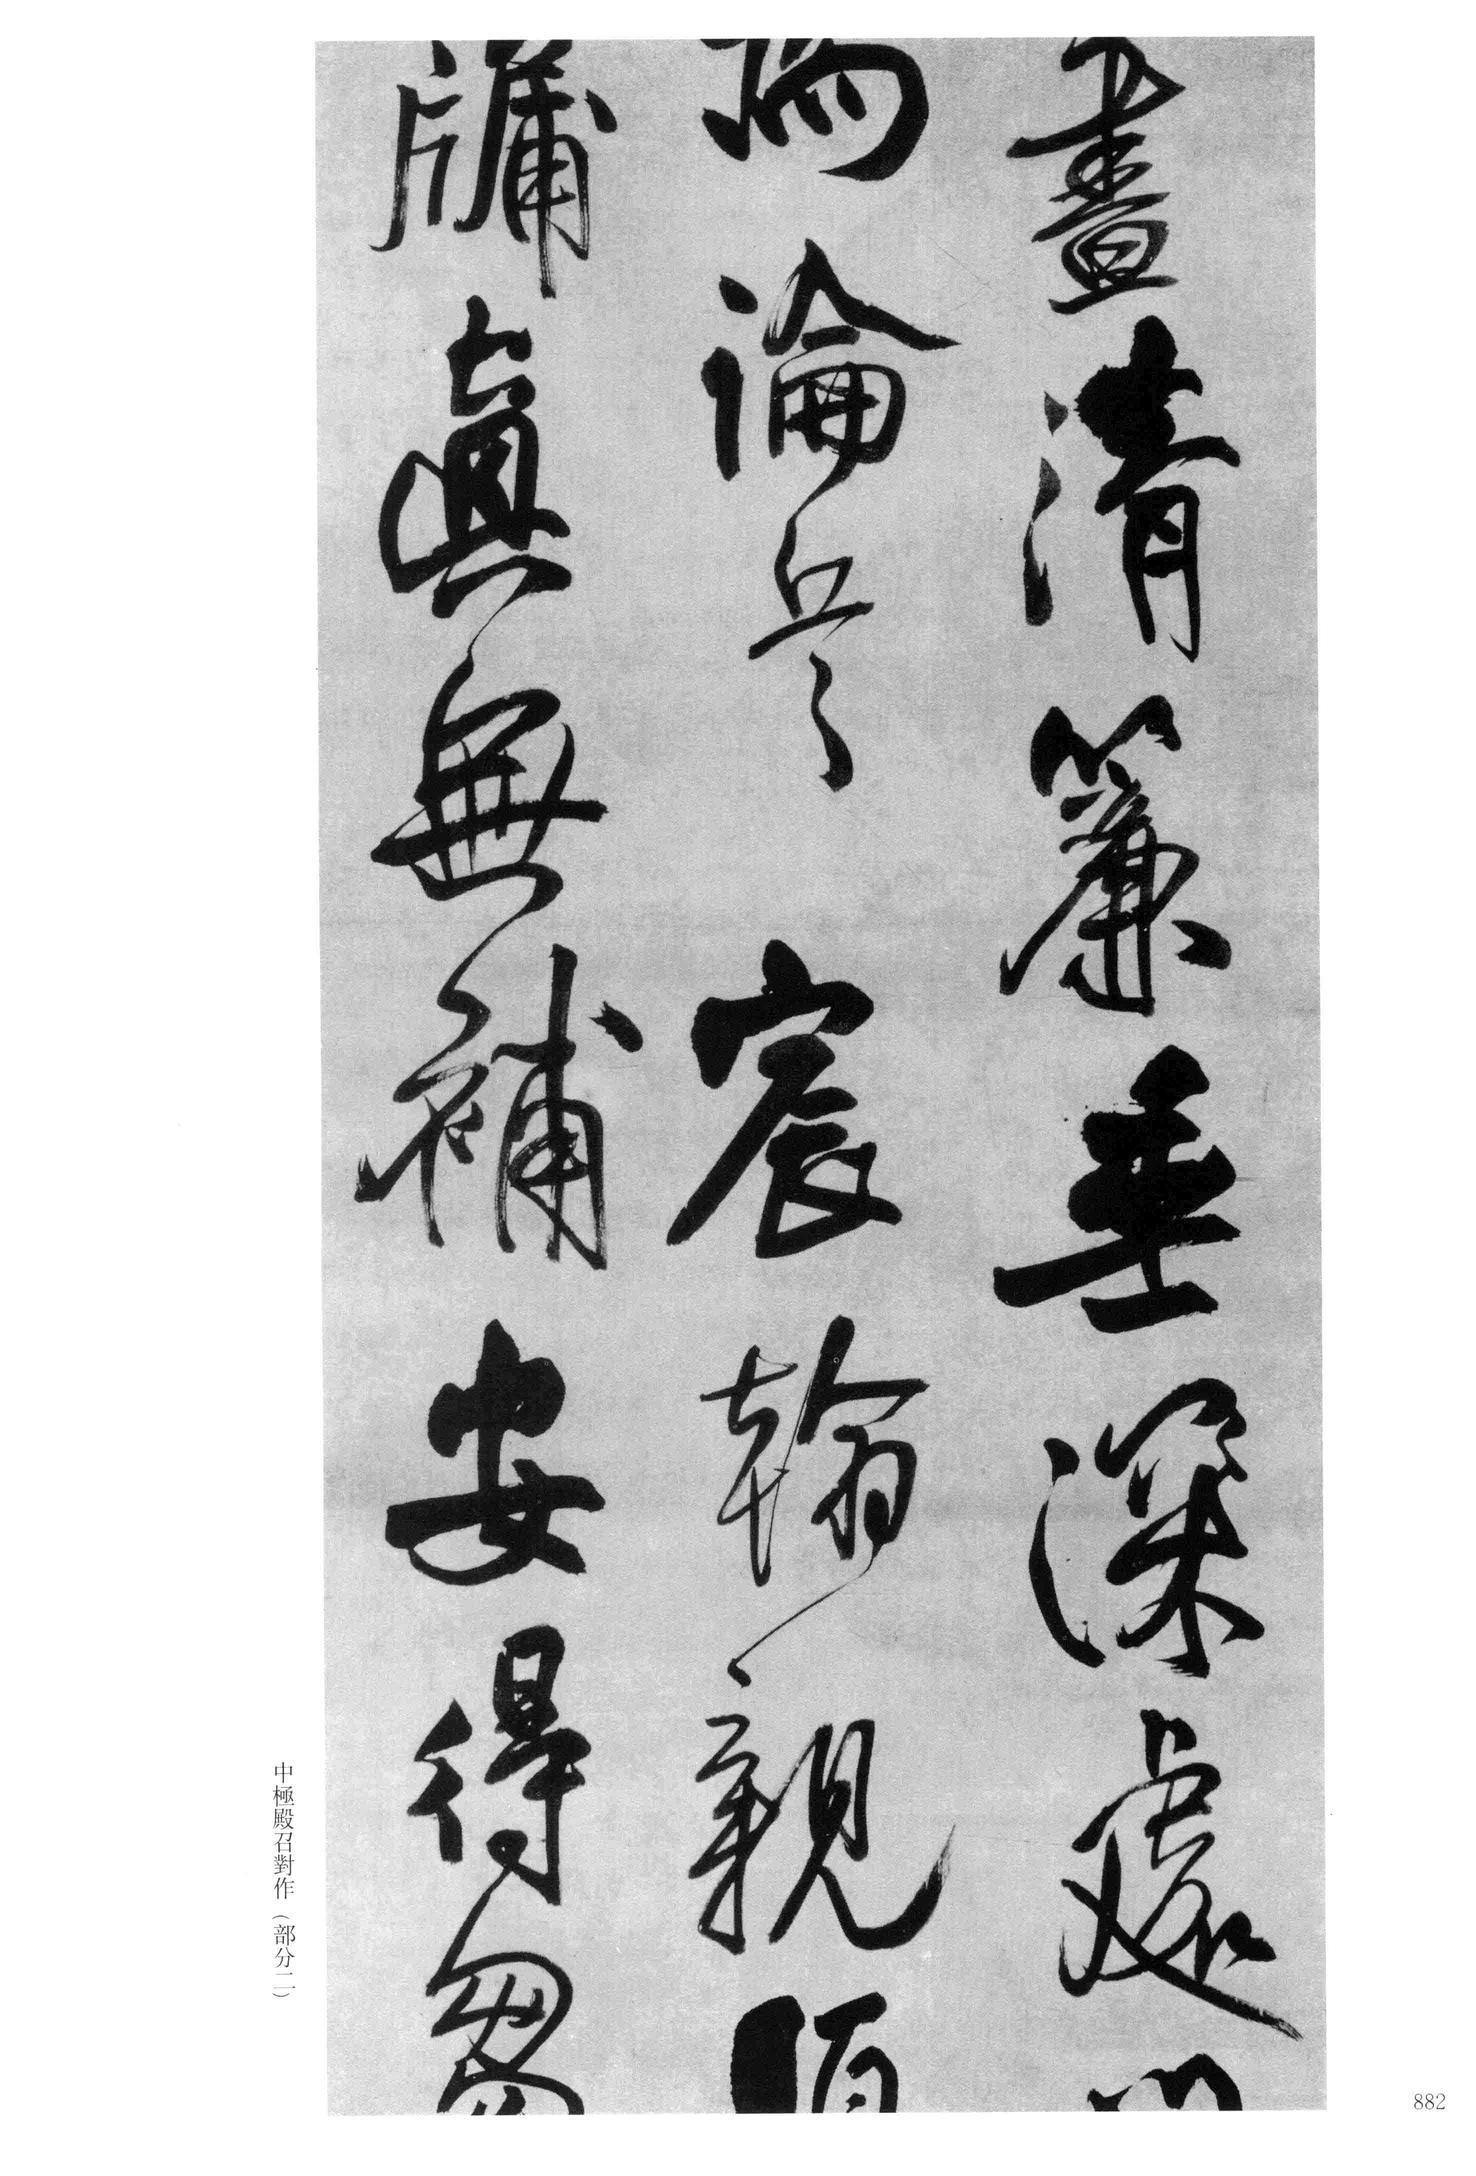 晝清簾垂深處
論兵宸翰親
牖真無補安得芻
中極殿召對作（部分二）
882